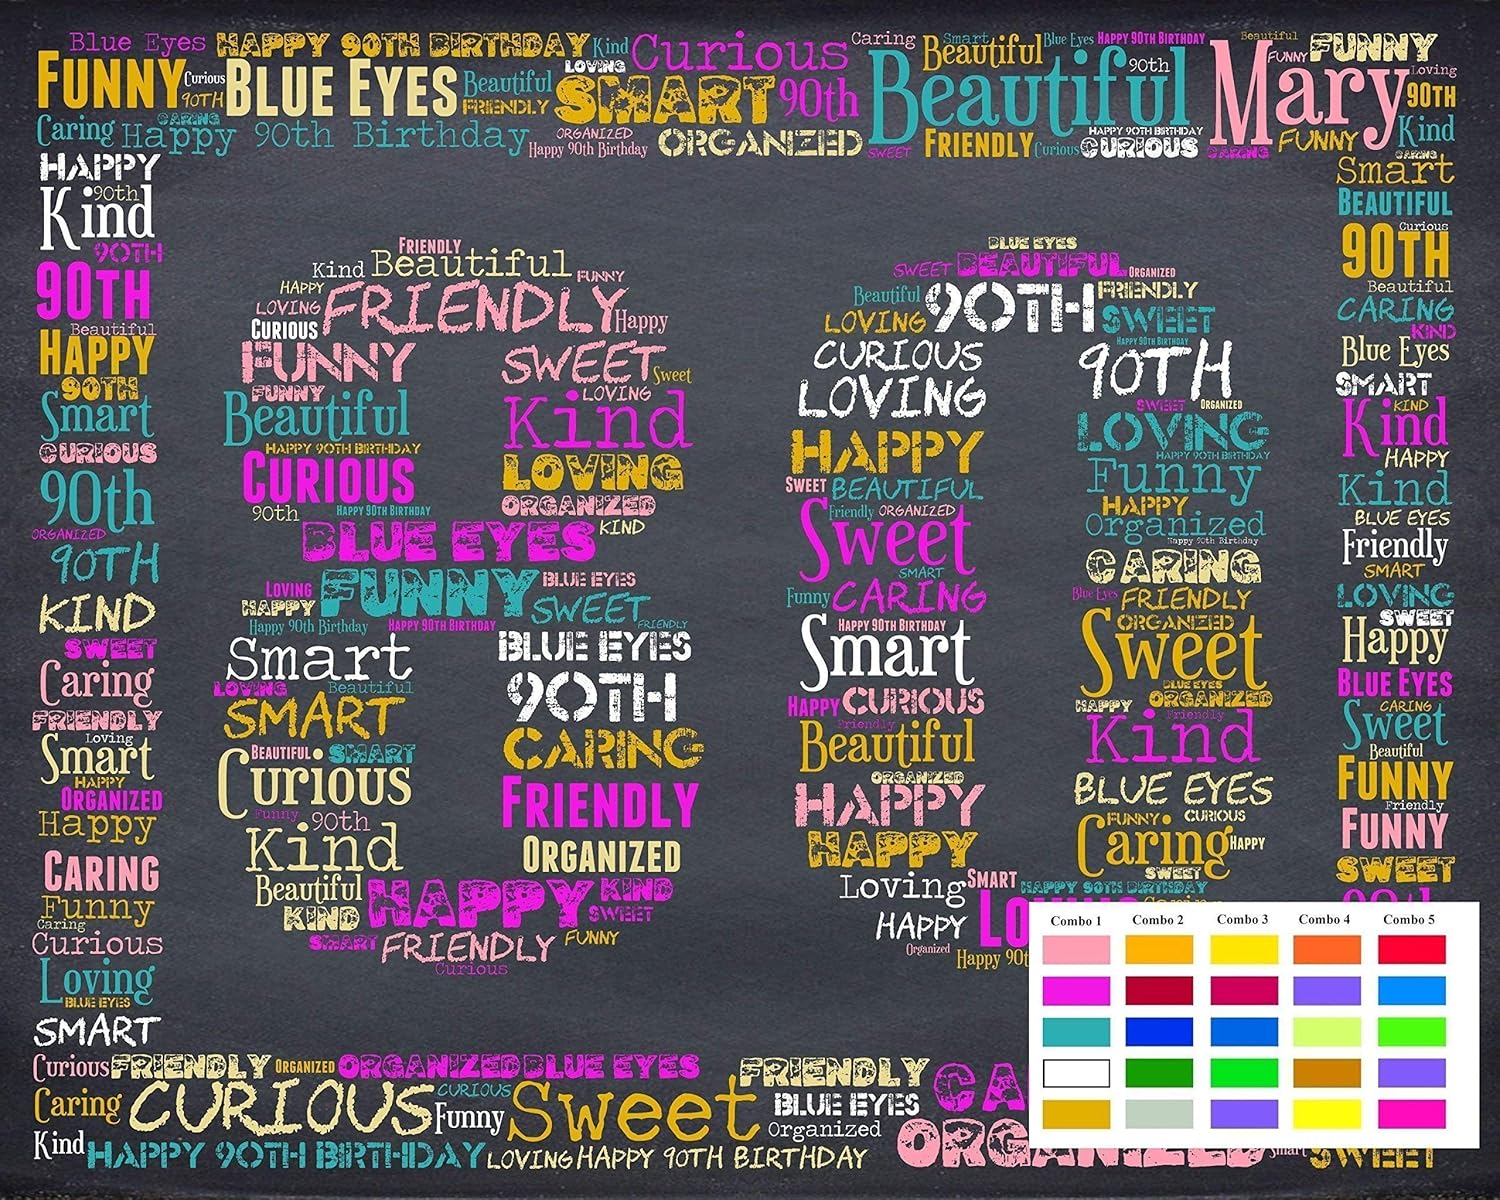 Blue Eyes HAPPY 90TH BIRTHDAY Kind Curious Caring Smart Beautiful Blue Eyes HAPPY 90TH BIRTHDAY Beautiful FUNNY
FUNNY Curious BLUE EYES Beautiful LOVING SMART 90th Beautiful 90th Mary FUNNY Loving
90TH FRIENDLY 90TH
Caring CARING Happy 90th Birthday ORGANIZED Happy 90th Birthday ORGANIZED SWEET FRIENDLY Curious HAPPY 90TH BIRTHDAY CURIOUS CARING FUNNY Kind
HAPPY
90th
Kind
90TH
90TH
Beautiful
HAPPY
90TH
Smart
CURIOUS
90th
ORGANIZED
90TH
KIND
SWEET
Caring
FRIENDLY
Loving
Smart
HAPPY
ORGANIZED
Happy
CARING
Funny
Caring
Curious
Loving
BLUE EYES
SMART
FRIENDLY
Kind Beautiful FUNNY
HAPPY
LOVING FRIENDLY
CURIOUS Happy
FUNNY SWEET Sweet
FUNNY LOVING
Beautiful Kind
HAPPY 90TH BIRTHDAY
CURIOUS LOVING
90th HAPPY 90TH BIRTHDAY ORGANIZED
BLUE EYES KIND
LOVING FUNNY BLUE EYES
HAPPY SWEET
Happy 90th Birthday HAPPY 90TH BIRTHDAY FRIENDLY
Smart BLUE EYES
LOVING Beautiful 90TH
SMART
BEAUTIFUL SMART CARING
Curious
Funny 90th FRIENDLY
Kind ORGANIZED
Beautiful HAPPY KIND
KIND SWEET
SMART FRIENDLY FUNNY
Curious
BLUE EYES
SWEET BEAUTIFUL ORGANIZED
Beautiful 90TH FRIENDLY
LOVING SWEET
HAPPY 90TH BIRTHDAY
CURIOUS 90TH
LOVING SWEET ORGANIZED
LOVING
HAPPY HAPPY 90TH BIRTHDAY
SWEET BEAUTIFUL Funny
Friendly ORGANIZED HAPPY
Sweet Organized
Happy 90th Birthday
SMART CARING
Funny CARING Blue Eyes FRIENDLY
HAPPY 90TH BIRTHDAY ORGANIZED
Smart Sweet
BLUE EYES
HAPPY CURIOUS HAPPY ORGANIZED
Friendly Friendly
Beautiful Kind
ORGANIZED BLUE EYES
HAPPY FUNNY CURIOUS
HAPPY Caring HAPPY
SWEET
Loving SMART HAPPY 90TH BIRTHDAY
HAPPY
Organized
CARING
Smart
BEAUTIFUL
Curious
90TH
Beautiful
CARING
KIND
Blue Eyes
SMART
KIND
Kind
HAPPY
Kind
BLUE EYES
Friendly
SMART
LOVING
SWEET
Happy
BLUE EYES
CARING
Sweet
Beautiful
FUNNY
Friendly
FUNNY
SWEET
Combo 1 Combo 2 Combo 3 Combo 4 Combo 5
Curious FRIENDLY ORGANIZED ORGANIZED BLUE EYES FRIENDLY
Caring CURIOUS CURIOUS Funny Sweet BLUE EYES
Organized
Kind HAPPY 90TH BIRTHDAY LOVING HAPPY 90TH BIRTHDAY ORGANIZED Smart SWEET